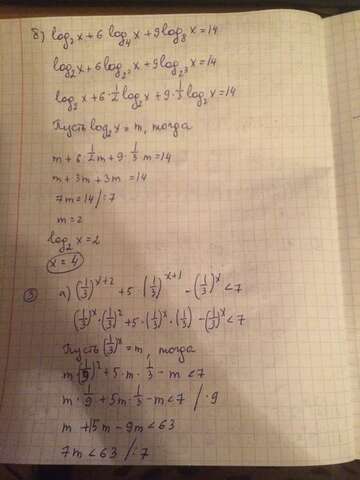 б) log₂x + 6 log₄x + 9 log₈x = 14
log₂x + 6 log₂²x + 9 log₂³x = 14
log₂x + 6 · 1/2 log₂x + 9 · 1/3 log₂x = 14
Пусть log₂x = m, тогда
m + 6 · 1/2 m + 9 · 1/3 m = 14
m + 3m + 3m = 14
7m = 14 /:7
m = 2
log₂x = 2
x = 4
③ а) (1/3)ˣ⁺² + 5 · (1/3)ˣ⁺¹ - (1/3)ˣ < 7
(1/3)ˣ · (1/3)² + 5 · (1/3)ˣ · (1/3) - (1/3)ˣ < 7
Пусть (1/3)ˣ = m, тогда
m · (1/3)² + 5 · m · 1/3 - m < 7
m · 1/9 + 5m · 1/3 - m < 7 / · 9
m + 15m - 9m < 63
7m < 63 /:7